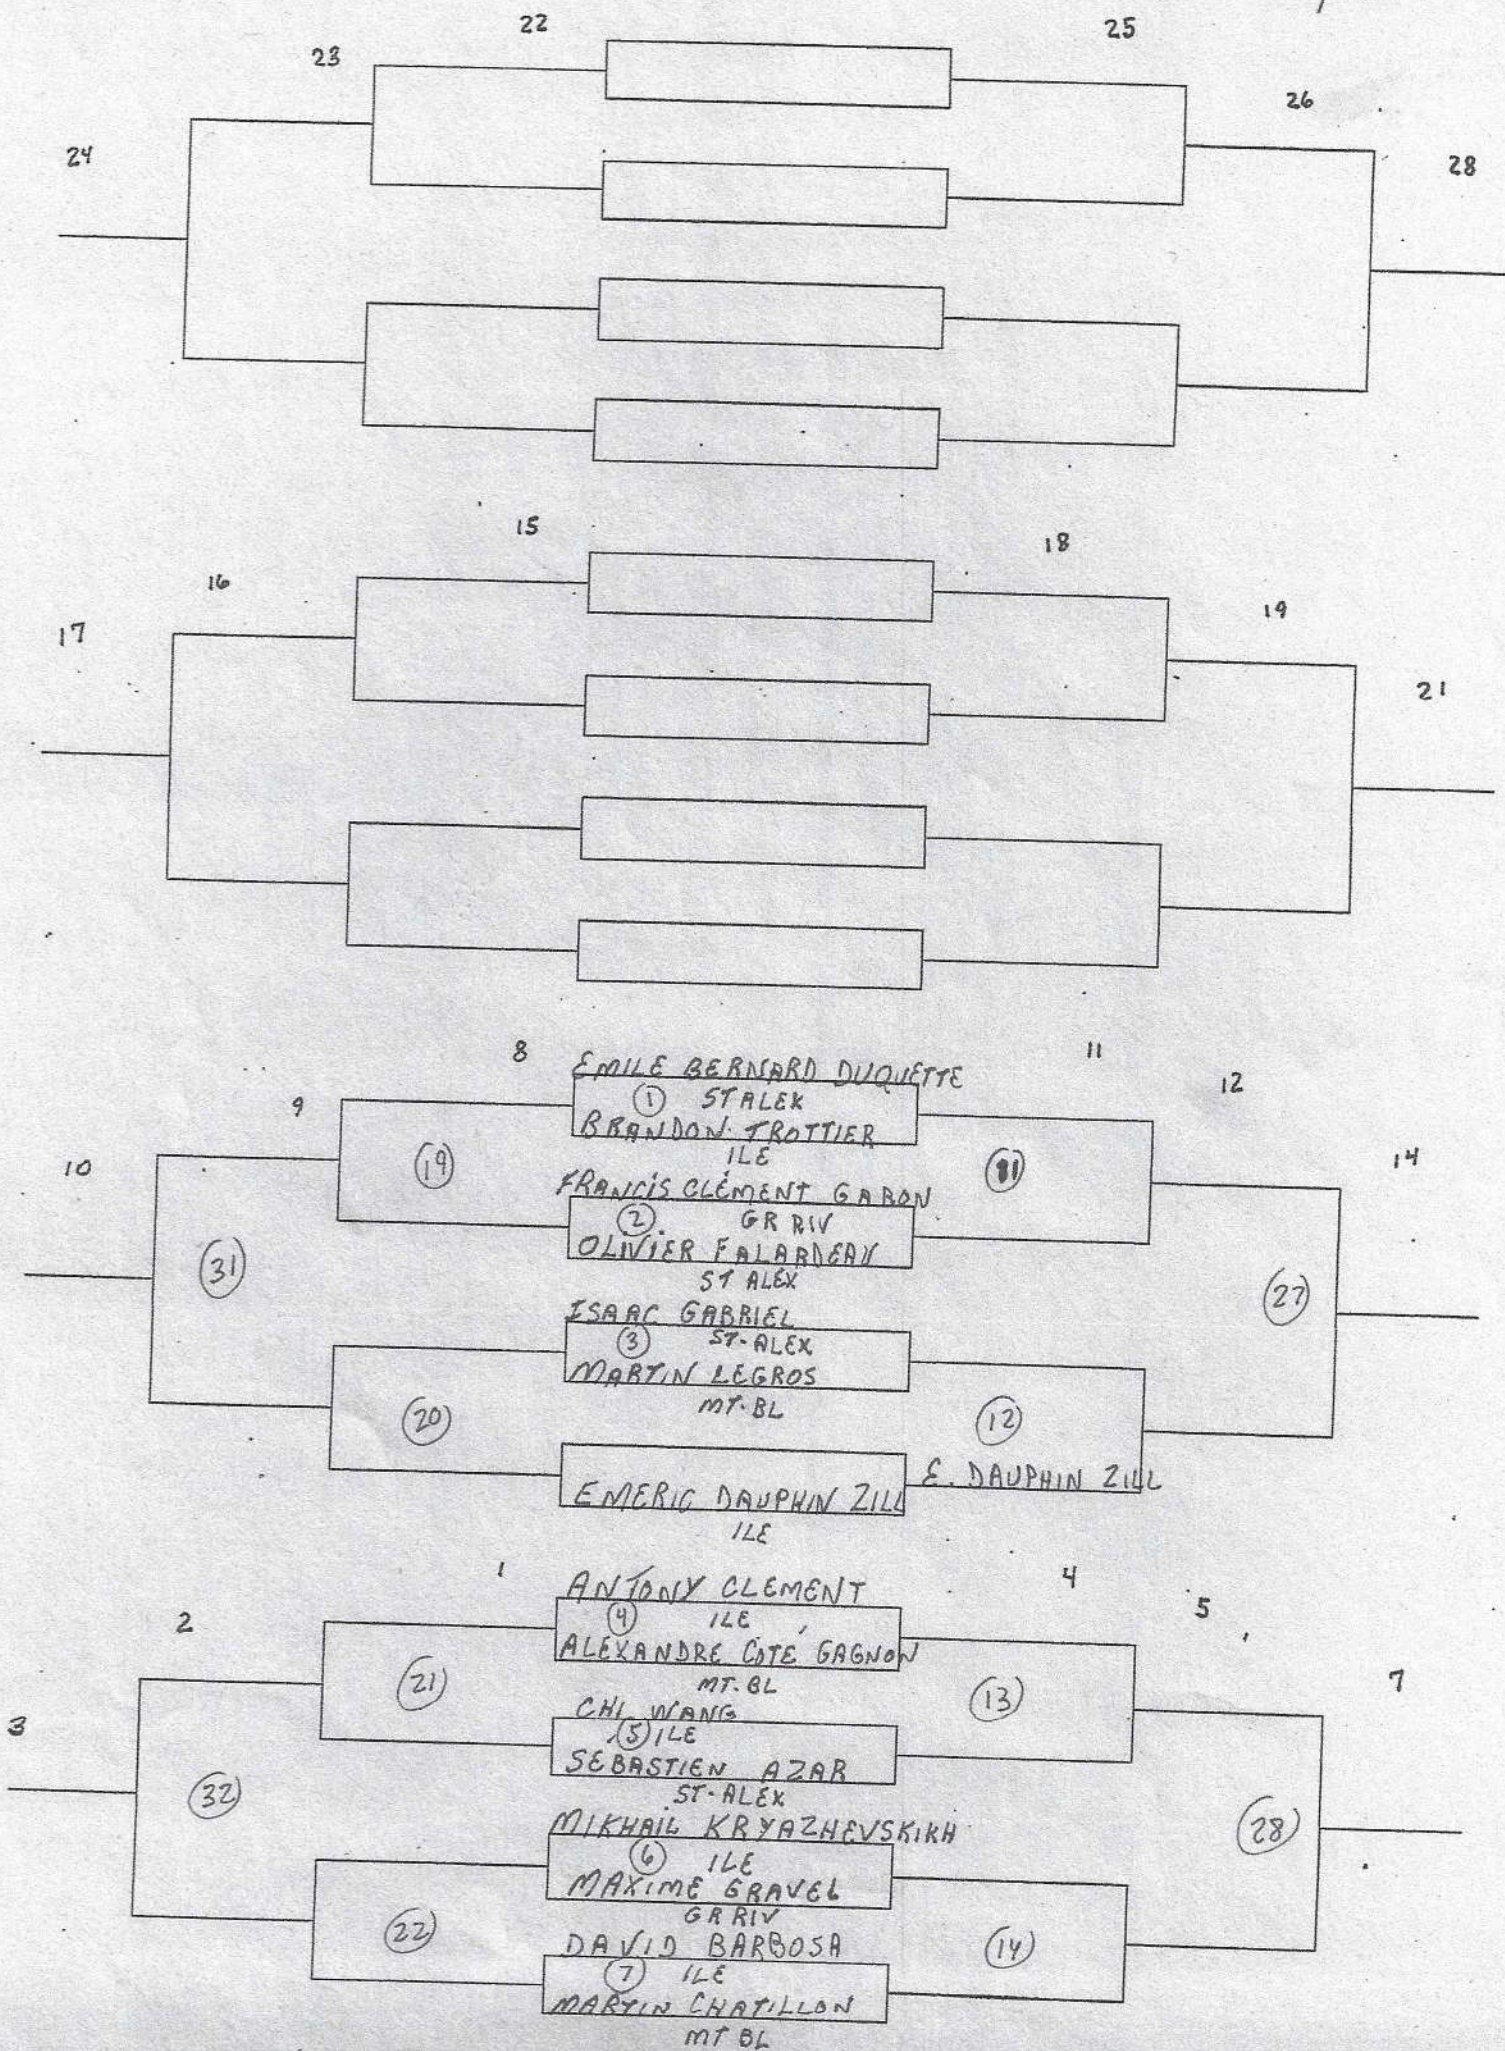 22
25
23
26
24
28
15
18
16
19
17
21
8
EMILE BERNARD DUQUETTE
11
12
9
1 ST ALEX
BRANDON TROTTIER
10
19
ILE
11
14
FRANCIS CLÉMENT GARON
2 GR RIV
OLIVIER FALARDEAU
31
ST ALEX
27
ISAAC GABRIEL
3 ST-ALEX
MARTIN LEGROS
20
MT-BL
12
E. DAUPHIN ZILL
EMERIC DAUPHIN ZILL
ILE
1
ANTONY CLEMENT
4
5
2
4 ILE
ALEXANDRE COTÉ GAGNON
21
MT. BL
13
7
3
CHI WANG
5 ILE
SEBASTIEN AZAR
32
ST-ALEX
28
MIKHAIL KRYAZHEVSKIKH
6 ILE
MAXIME GRAVEL
GR RIV
22
DAVID BARBOSA
14
7 ILE
MARTIN CHATILLON
MT BL